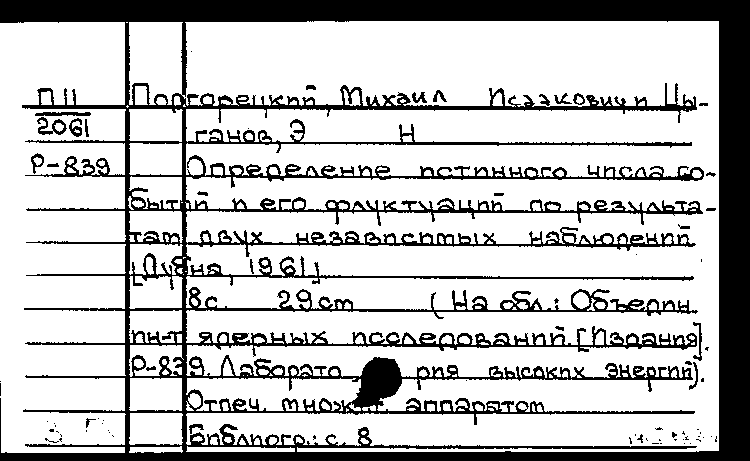 П11 Подгорецкий, Михаил Исаакович и Цы-
2061 ганов, Э Н
Р-839 Определение истинного числа со-
бытий и его флуктуаций по результа-
там двух независимых наблюдений
[Дубна, 1961]
8с. 29cm (На обл.: Объедин.
ин-т ядерных исследований. [Издания].
Р-839. Лаборатория высоких энергий).
Отпеч. множит. аппаратом
Библиогр.: с. 8